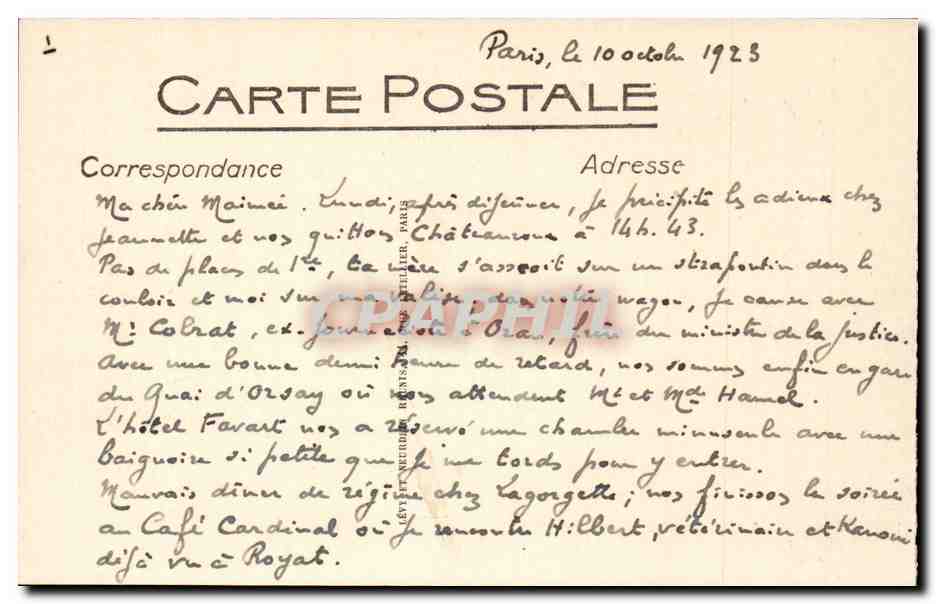 1
Paris, le 10 octobre 1923
CARTE POSTALE
Correspondance
Adresse
Ma chère Maimée. Lundi, après déjeuner, je précipite les adieux chez
Jeannette et nos quittons Châteauroux à 14h.43.
Pas de places de 1re, ta mère s'asseoit sur un strapontin dans le
couloir et moi sur ma valise, dans notre wagon, je cause avec
Mr Colrat, ex-journaliste à Oran, frère du ministre de la justice.
Avec une bonne demi heure de retard, nos sommes enfin en gare
du Quai d'Orsay où nous attendent Mr et Mde Hamel.
L'hôtel Favart nos a réservé une chambre minuscule avec une
baignoire si petite que je me tords pour y entrer.
Mauvais dîner de régime chez Lagorgette; nos finissons la soirée
au Café Cardinal où je rencontre Hilbert, vétérinaire et
déjà vu à Royat.
LÉVY ET NEURDEIN RÉUNIS, RUE LETELLIER, PARIS
CPAPHIL